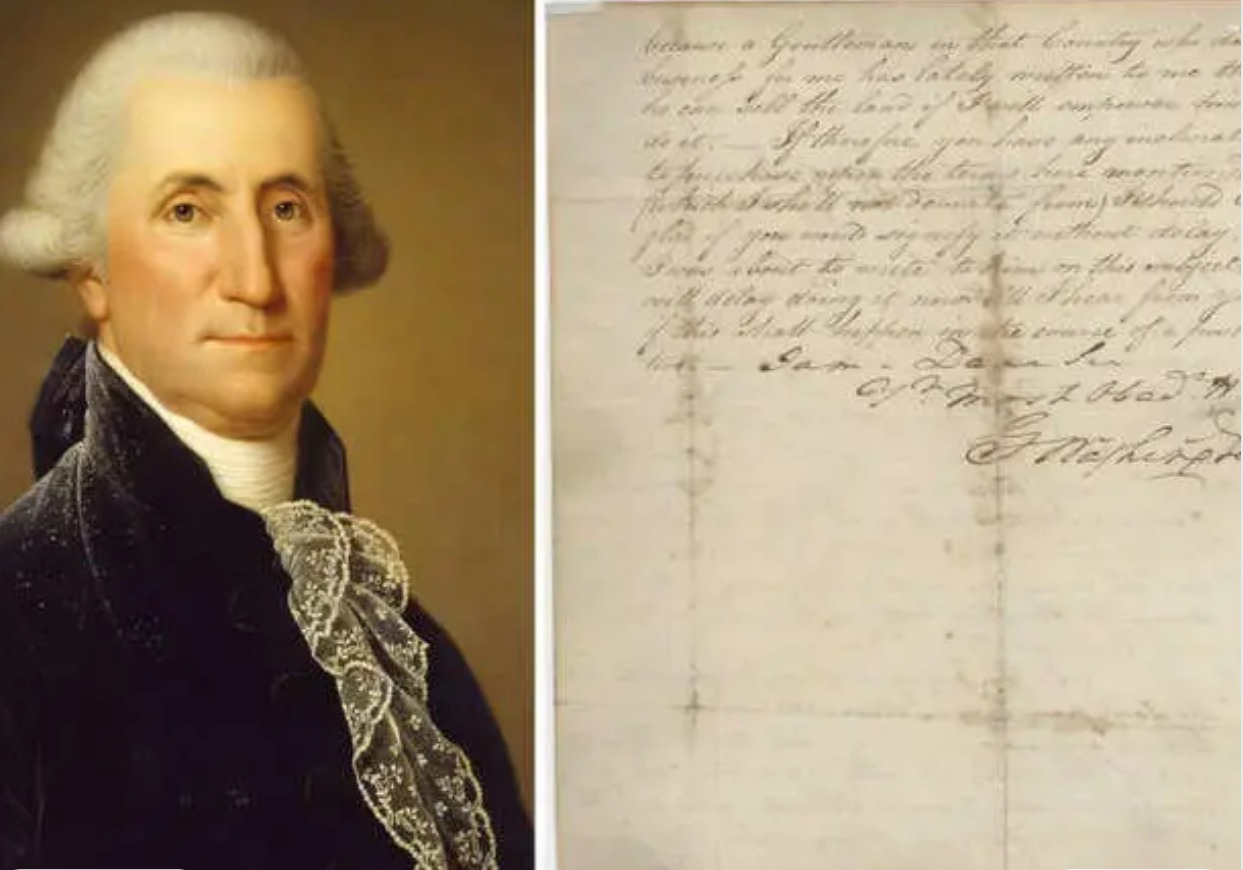 because a Gentleman in that Country who
business for me has lately written to me
he can sell the land if I will empower
do it. — If therefore you have any
to purchase upon the terms here
(which I shall not from) I should
glad if you would signify it without delay.
I was about to write to him on this subject,
will delay doing it until I hear from
if this shall happen in the course of a
— I am - Dear Sir
Yr Most Obedt H
G Washington